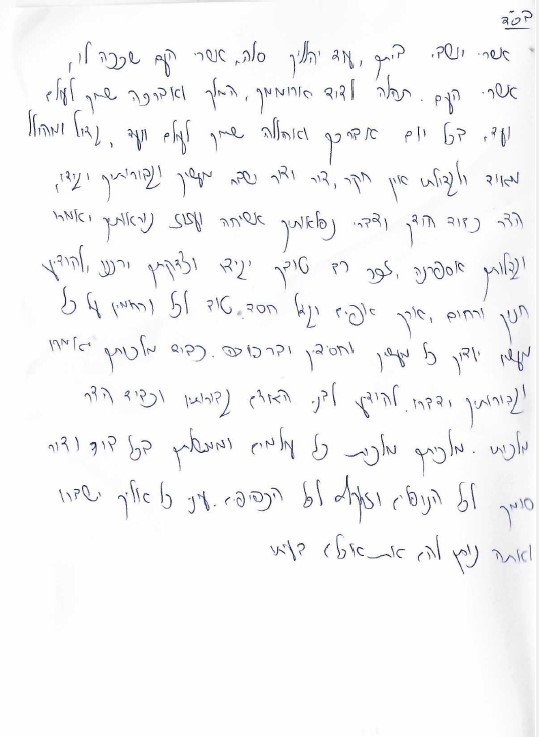 בס"ד
אשרי יושבי ביתך, עוד יהללוך סלה, אשרי העם שככה לו,
אשרי העם. תהלה לדוד ארוממך, המלך ואברכה שמך לעולם
ועד, בכל יום אברכך ואהללה שמך לעולם ועד, גדול ומהולל
מאוד ולגדולתו אין חקר, דור ודור ישבח מעשיך וגבורותיך יגידו,
הדר כבוד הודך ודברי נפלאותיך אשיחה ועזוז נוראותיך יאמרו
וגדלותך אספרנה, זכר רב טובך יביעו וצדקתך ירננו, להודיע
חנון ורחום, ארך אפיים וגדל חסד. טוב לכל ורחמיו על כל
מעשיו יודוך כל מעשיך וחסידיך יברכוכה. כבוד מלכותך יאמרו
וגבורותיך ידברו. להודיע לבני האדם גבורותיו וכבוד הדר
מלכותו. מלכותך מלכות כל עולמים וממשלתך בכל דור ודור
סומך לכל הנופלים וזוקף לכל הכפופים. עיני כל אליך ישברו
ואתה נותן להם את אוכלם בעתו